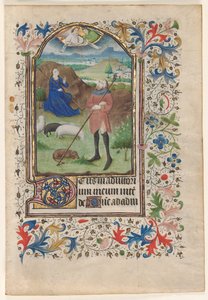 Deus in adiutori
um meum inte
de Due ad adiu